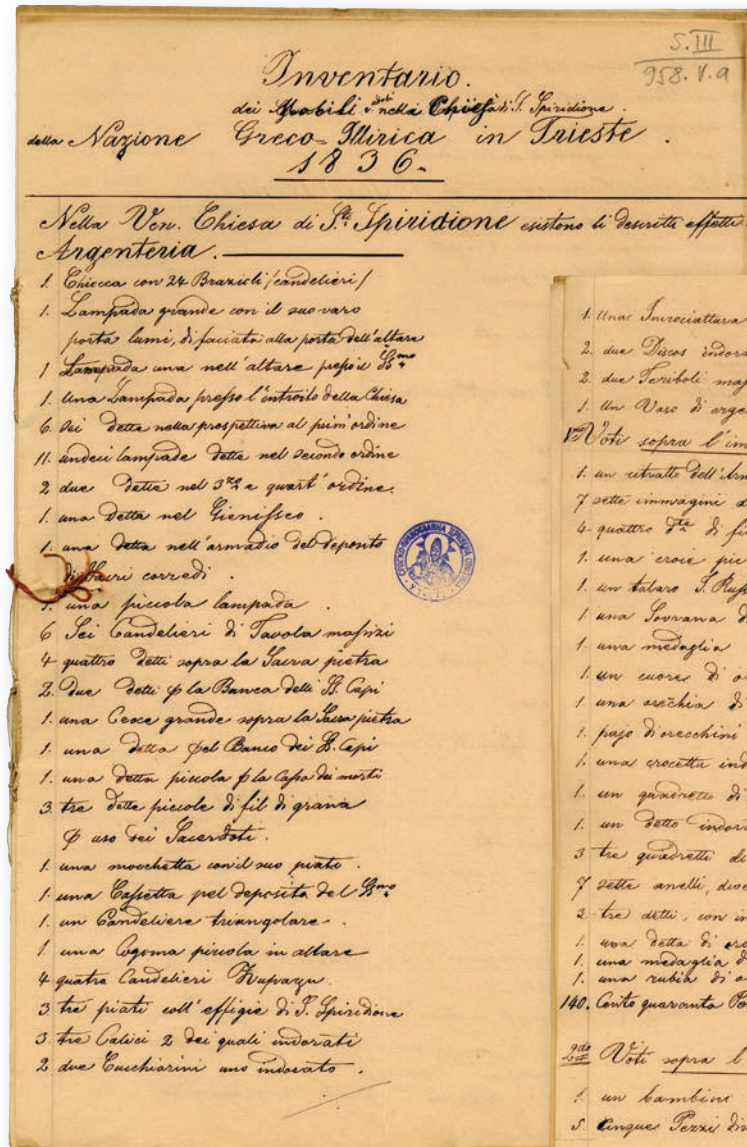 S. III
958. V. a
Inventario.
dei Mobili nella Chiesa di S. Spiridione.
della Nazione Greco-Illirica in Trieste.
1836.
Nella Ven. Chiesa di S.te Spiridione esistono li descritti effetti
Argenteria.
1. Chiocca con 24 Brazioli /candelieri/
1. Lampada grande con il suo vaso
porta lumi, di faciata alla porta dell'altare
1 Lampada una nell'altare presso il SSmo
1. Una Lampada presso l'introito della Chiesa
6. Sei dette nella prospettiva al prim'ordine
11. undici lampade dette nel secondo ordine
2 due dette nel 3zo e quart'ordine.
1. una detta nel
1. una detta nell'armadio del deposito
di Sacri corredi.
1. una piccola lampada.
6 Sei Candelieri di Tavola massizi
4 quattro detti sopra la Sacra pietra
2. Due detti p la Banca delli SS. Capi
1. una Croce grande sopra la Sacra pietra
1. una detta pel Banco dei SS. Capi
1. una detta piccola p la Cassa dei morti
3. tre dette piccole di fil di grana
p uso dei Sacerdoti.
1. una mocchetta con il suo piato.
1. una Cassetta pel deposito del SSmo
1. un Candeliere triangolare.
1. una Cogoma piccola in altare
4 quatro Candelieri
3 tre piati coll'effigie di S. Spiridione
3. tre Calici 2 dei quali indorati
2 due Cucchiarini uno indorato.
1. Una Incrociattura
2. due Discos indora
2. due Teriboli mas
1. Un Vaso di arge
1mo Voti sopra l'im
1. un ritratto dell'
7 sette immagini d
4 quattro dte di fi
1. una croce pic
1. un talaro I. Russ
1. una Sovrana d
1. una medaglia
1. un cuore di o
1. una orechia di
1. pajo di orecchini
1. una crocetta ind
1. un quadretto di
1. un detto indora
3 tre quadretti di
7 sette anelli, due
3. tre detti, con in
1. una detta di oro
1. una medaglia d
1. una rubia di o
140. Cento quaranta Pe
2do Voti sopra l
1. un bambino
5 Cinque Pezzi div